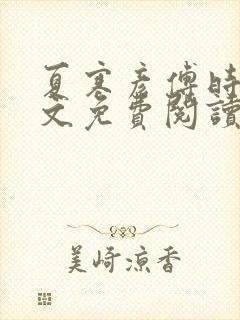 夏寒彥傅時
文免費閱讀
美崎涼香